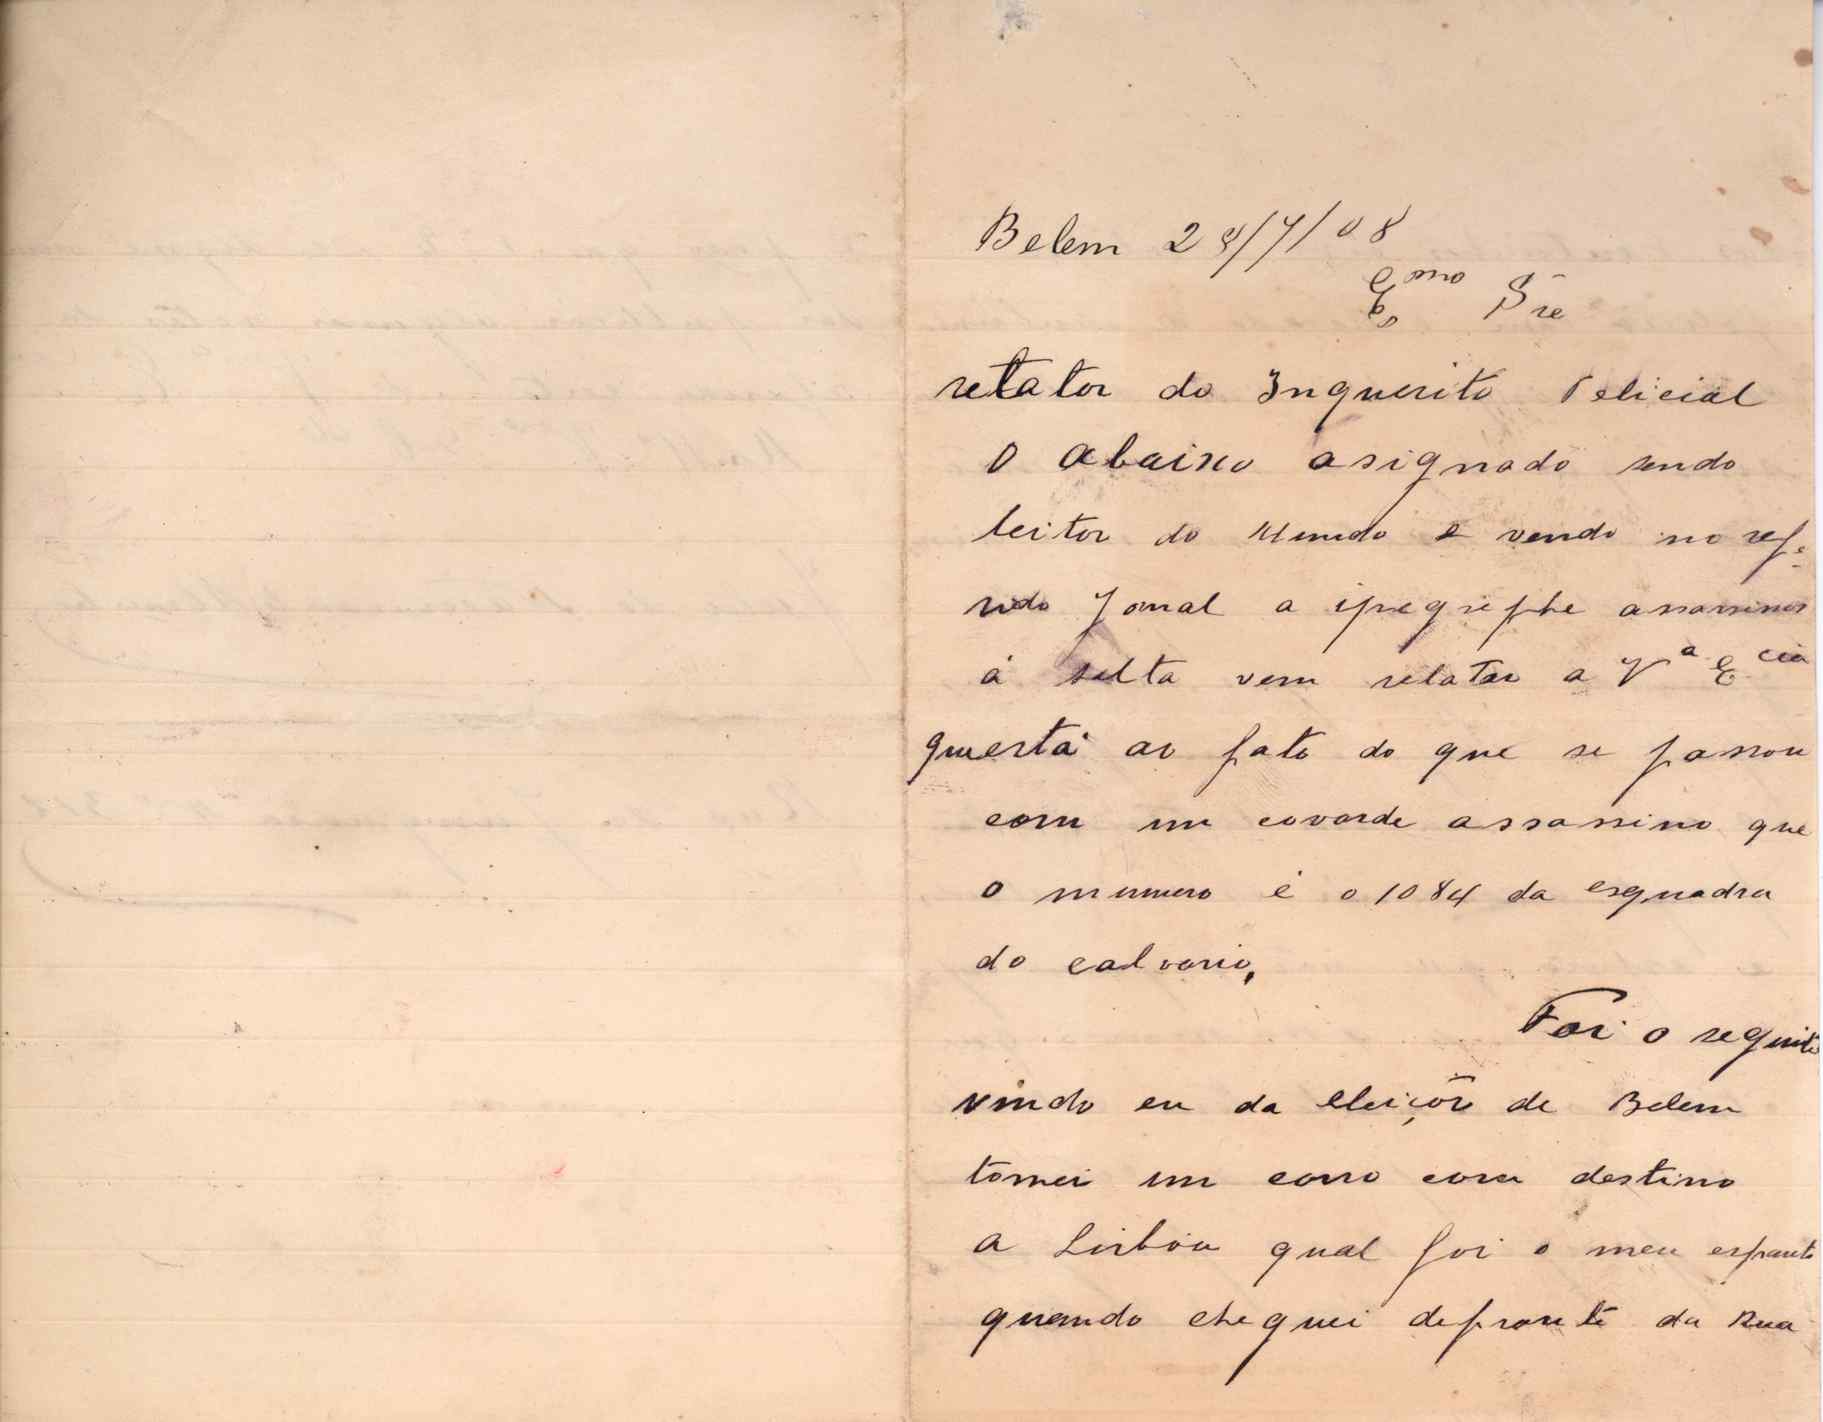 Belem 28/7/08
Emo Sre
retator do Inquerito Pelicial
O abaixo asignado sendo
leitor do Mundo e vendo no refe
rido Jornal a ipegrephe assassinos
á solta vem relatar a Va Ecia
questá ao fato do que se passou
com um covarde assassino que
o numero é o 1084 da esquadra
do calvario,
Foi o seguinte
vindo eu da eleição de Belem
tomei um carro com destino
a Lisboa qual foi o meu espanto
quando cheguei defronte da Rua